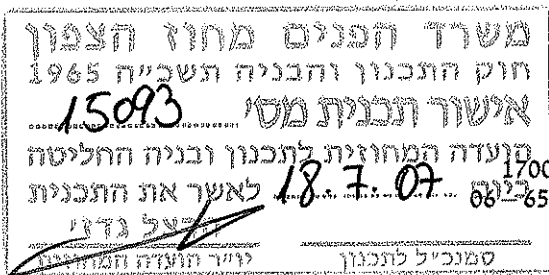 משרד הפנים מחוז הצפון
חוק התכנון והבניה תשכ״ה 1965
אישור תכנית מס׳ 15093
הועדה המחוזית לתכנון ובניה החליטה
ביום 18.7.07 לאשר את התכנית
1700
06—65
סמנכ״ל לתכנון יו״ר הועדה המחוזית